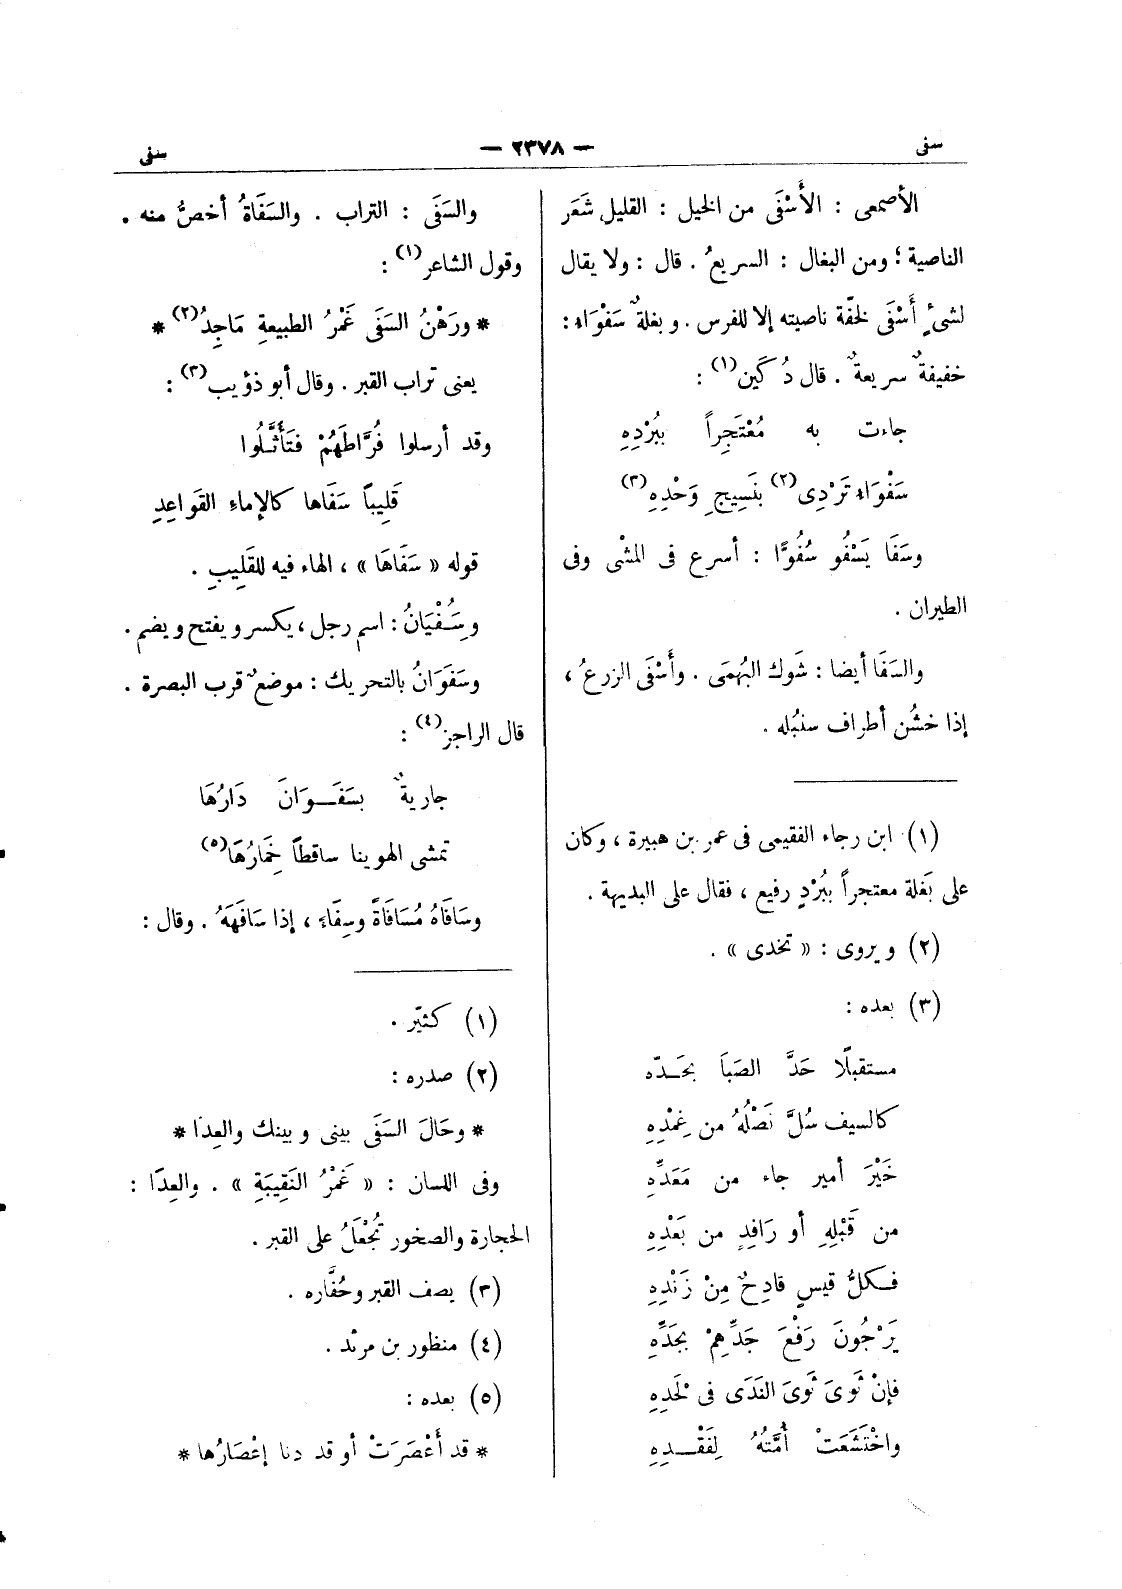 سفى
— ٢٣٧٨ —
سفى
الأصمعى : الأَسْفَى من الخيل : القليل شَعَر
الناصية ؛ ومن البغال : السريعُ . قال : ولا يقال
لشئٍ أَسْفَى لخفّة ناصيته إلا للفرس . وبغلةٌ سَفْوَاء :
خفيفةٌ سريعةٌ . قال دُكَين(١) :
جاءت به مُعْتَجِراً بِبُرْدِهِ
سَفْوَاء تَرْدِى(٢) بنَسِيجِ وَحْدِهِ(٣)
وسَفَا يَسْفُو سُفُوًّا : أسرع فى المشْى وفى
الطيران .
والسَفَا أيضا : شَوك البُهمَى . وأَسْفَى الزرعُ ،
إذا خشُن أطراف سنبُله .
(١) ابن رجاء الفقيمى فى عمر بن هبيرة ، وكان
على بَغلة معتجراً بِبُرْدٍ رفيع ، فقال على البديهة .
(٢) ويروى : « تخدى » .
(٣) بعده :
مستقبلًا حَدَّ الصَبَا بحَـدّه
كالسيف سُلَّ نَصْلُهُ من غِمْدِهِ
خَيْرَ أمير جاء من مَعَدِّهِ
من قَبْلِهِ أو رَافِدٍ من بَعْدِهِ
فـكلُّ قيسٍ قادِحٌ مِنْ زَنْدِهِ
يَرْجُونَ رَفْعَ جَدِّهِمْ بجَدِّهِ
فإنْ ثَوىَ ثَوىَ النَدَى فى لَحْدِهِ
واخْتَشَعَتْ أُمَّتُهُ لِفَقْـدِهِ
والسَفَى : التراب . والسَفَاةُ أخصُّ منه .
وقول الشاعر(١) :
* ورَهْنُ السَفَى غَمْرُ الطبيعةِ مَاجِدُ(٢) *
يعنى تراب القبر . وقال أبو ذؤيب(٣) :
وقد أرسلوا فُرَّاطَهُمْ فتَأَثَّـلُوا
قَلِيباً سَفَاها كالإماءِ القَواعِدِ
قوله « سَفَاهَا » ، الهاء فيه للقَلِيبِ .
وسُِفْيَانُ : اسم رجل ، يكسر ويفتح ويضم .
وسَفَوَانُ بالتحريك : موضعٌ قرب البصرة .
قال الراجز(٤) :
جاريةٌ بسَفَـوَانَ دَارُهَا
تمشى الهوينا ساقطاً خِمَارُهَا(٥)
وسَافَاهُ مُسَافَاةً وسِفَاء ، إذا سَافَهَهُ . وقال :
(١) كثيّر .
(٢) صدره :
* وحَالَ السَفَى بينى وبينك والعِدَا *
وفى اللسان : « غَمْرُ النَقِيبَةِ » . والعِدَا :
الحجارة والصخور تُجْعَلُ على القبر .
(٣) يصف القبر وحُفَّاره .
(٤) منظور بن مرثد .
(٥) بعده :
* قد أَعْصَرَتْ أو قد دنا إعْصَارُها *